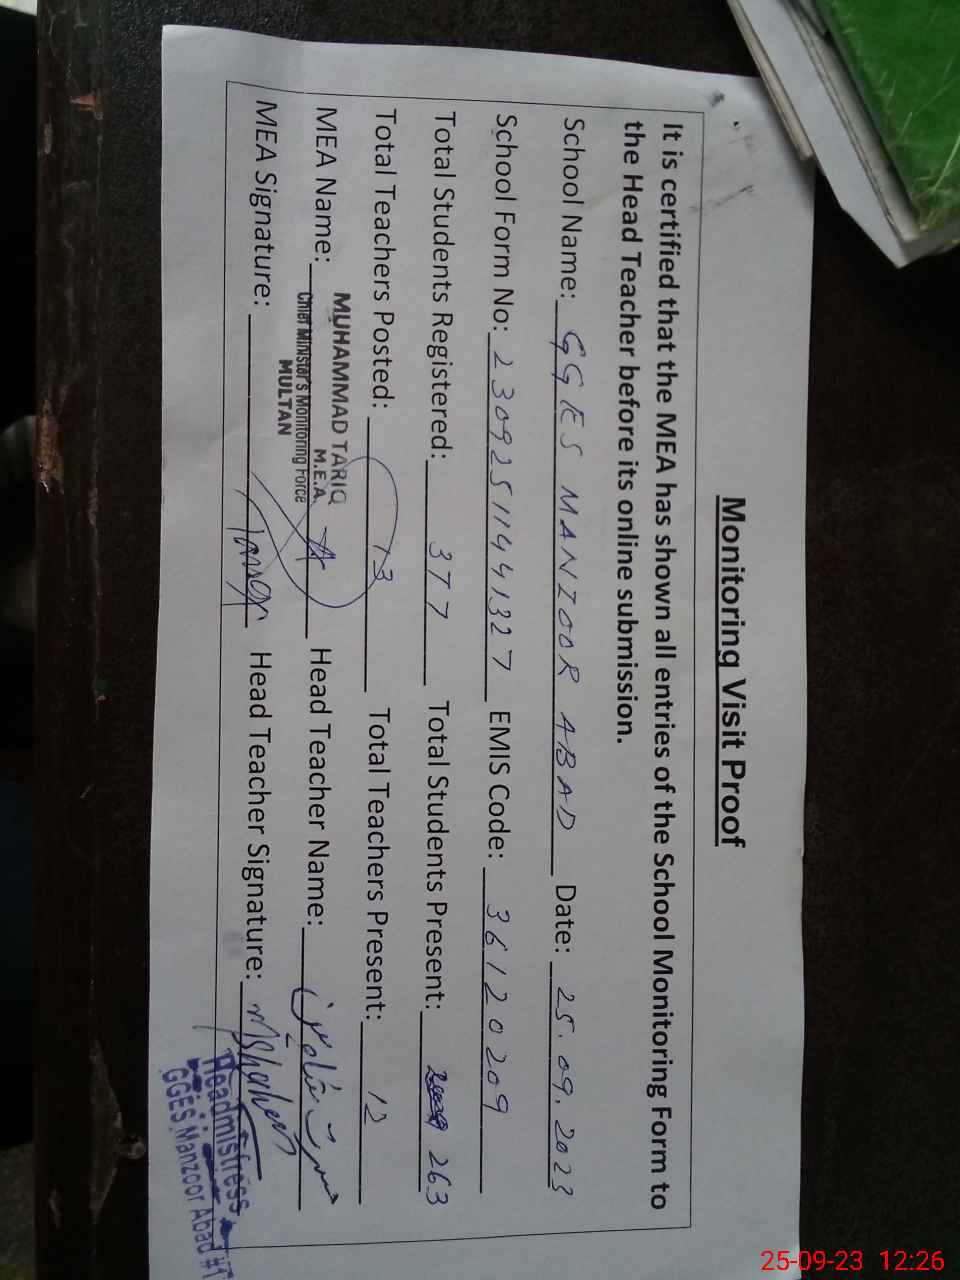 Monitoring Visit Proof
It is certified that the MEA has shown all entries of the School Monitoring Form to
the Head Teacher before its online submission.
School Name: GGES MANZOOR ABAD Date: 25.09.2023
School Form No: 23092511441327 EMIS Code: 36120209
Total Students Registered: 377 Total Students Present: 263
Total Teachers Posted: 13 Total Teachers Present: 12
MUHAMMAD TARIQ
M.E.A
MEA Name: Head Teacher Name:
Chief Minister's Monitoring Force
MULTAN
MEA Signature: Head Teacher Signature:
Headmistress
GGES Manzoor Abad #1
25-09-23 12:26